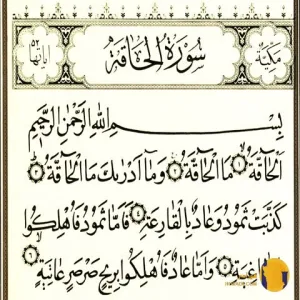 مكية سورة الحاقة آياتها ٥٢
بِسْمِ اللَّهِ الرَّحْمَٰنِ الرَّحِيمِ
الْحَاقَّةُ ١ مَا الْحَاقَّةُ ٢ وَمَا أَدْرَىٰكَ مَا الْحَاقَّةُ ٣
كَذَّبَتْ ثَمُودُ وَعَادٌ بِالْقَارِعَةِ ٤ فَأَمَّا ثَمُودُ فَأُهْلِكُوا
وَأَمَّا عَادٌ فَأُهْلِكُوا بِرِيحٍ صَرْصَرٍ عَاتِيَةٍ ٦